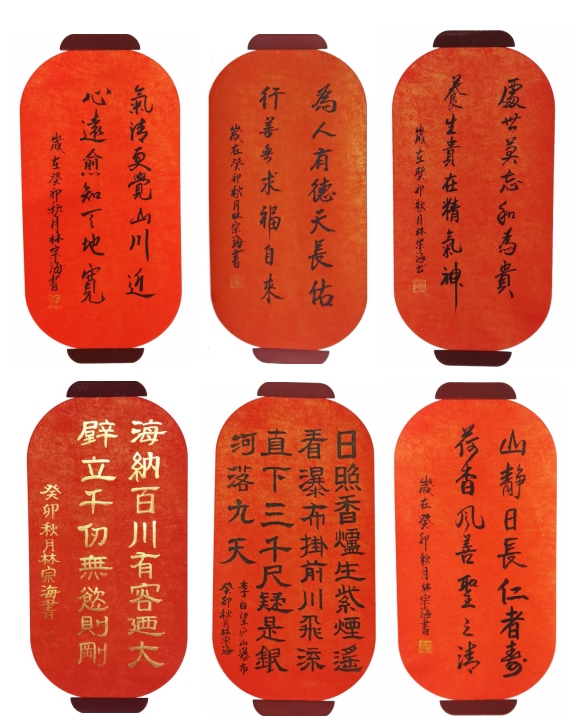 氣清更覺山川近
心遠愈知天地寬
歲在癸卯秋月林宗海書
為人有德天長佑
行善無求福自來
歲在癸卯秋月林宗海書
處世莫忘和為貴
養生貴在精氣神
歲在癸卯秋月林宗海書
海納百川有容迺大
壁立千仞無慾則剛
癸卯秋月林宗海書
日照香爐生紫煙遙
看瀑布掛前川飛流
直下三千尺疑是銀
河落九天
李白望庐山瀑布
癸卯秋月林宗海
山靜日長仁者壽
荷香風善聖之清
歲在癸卯秋月林宗海書